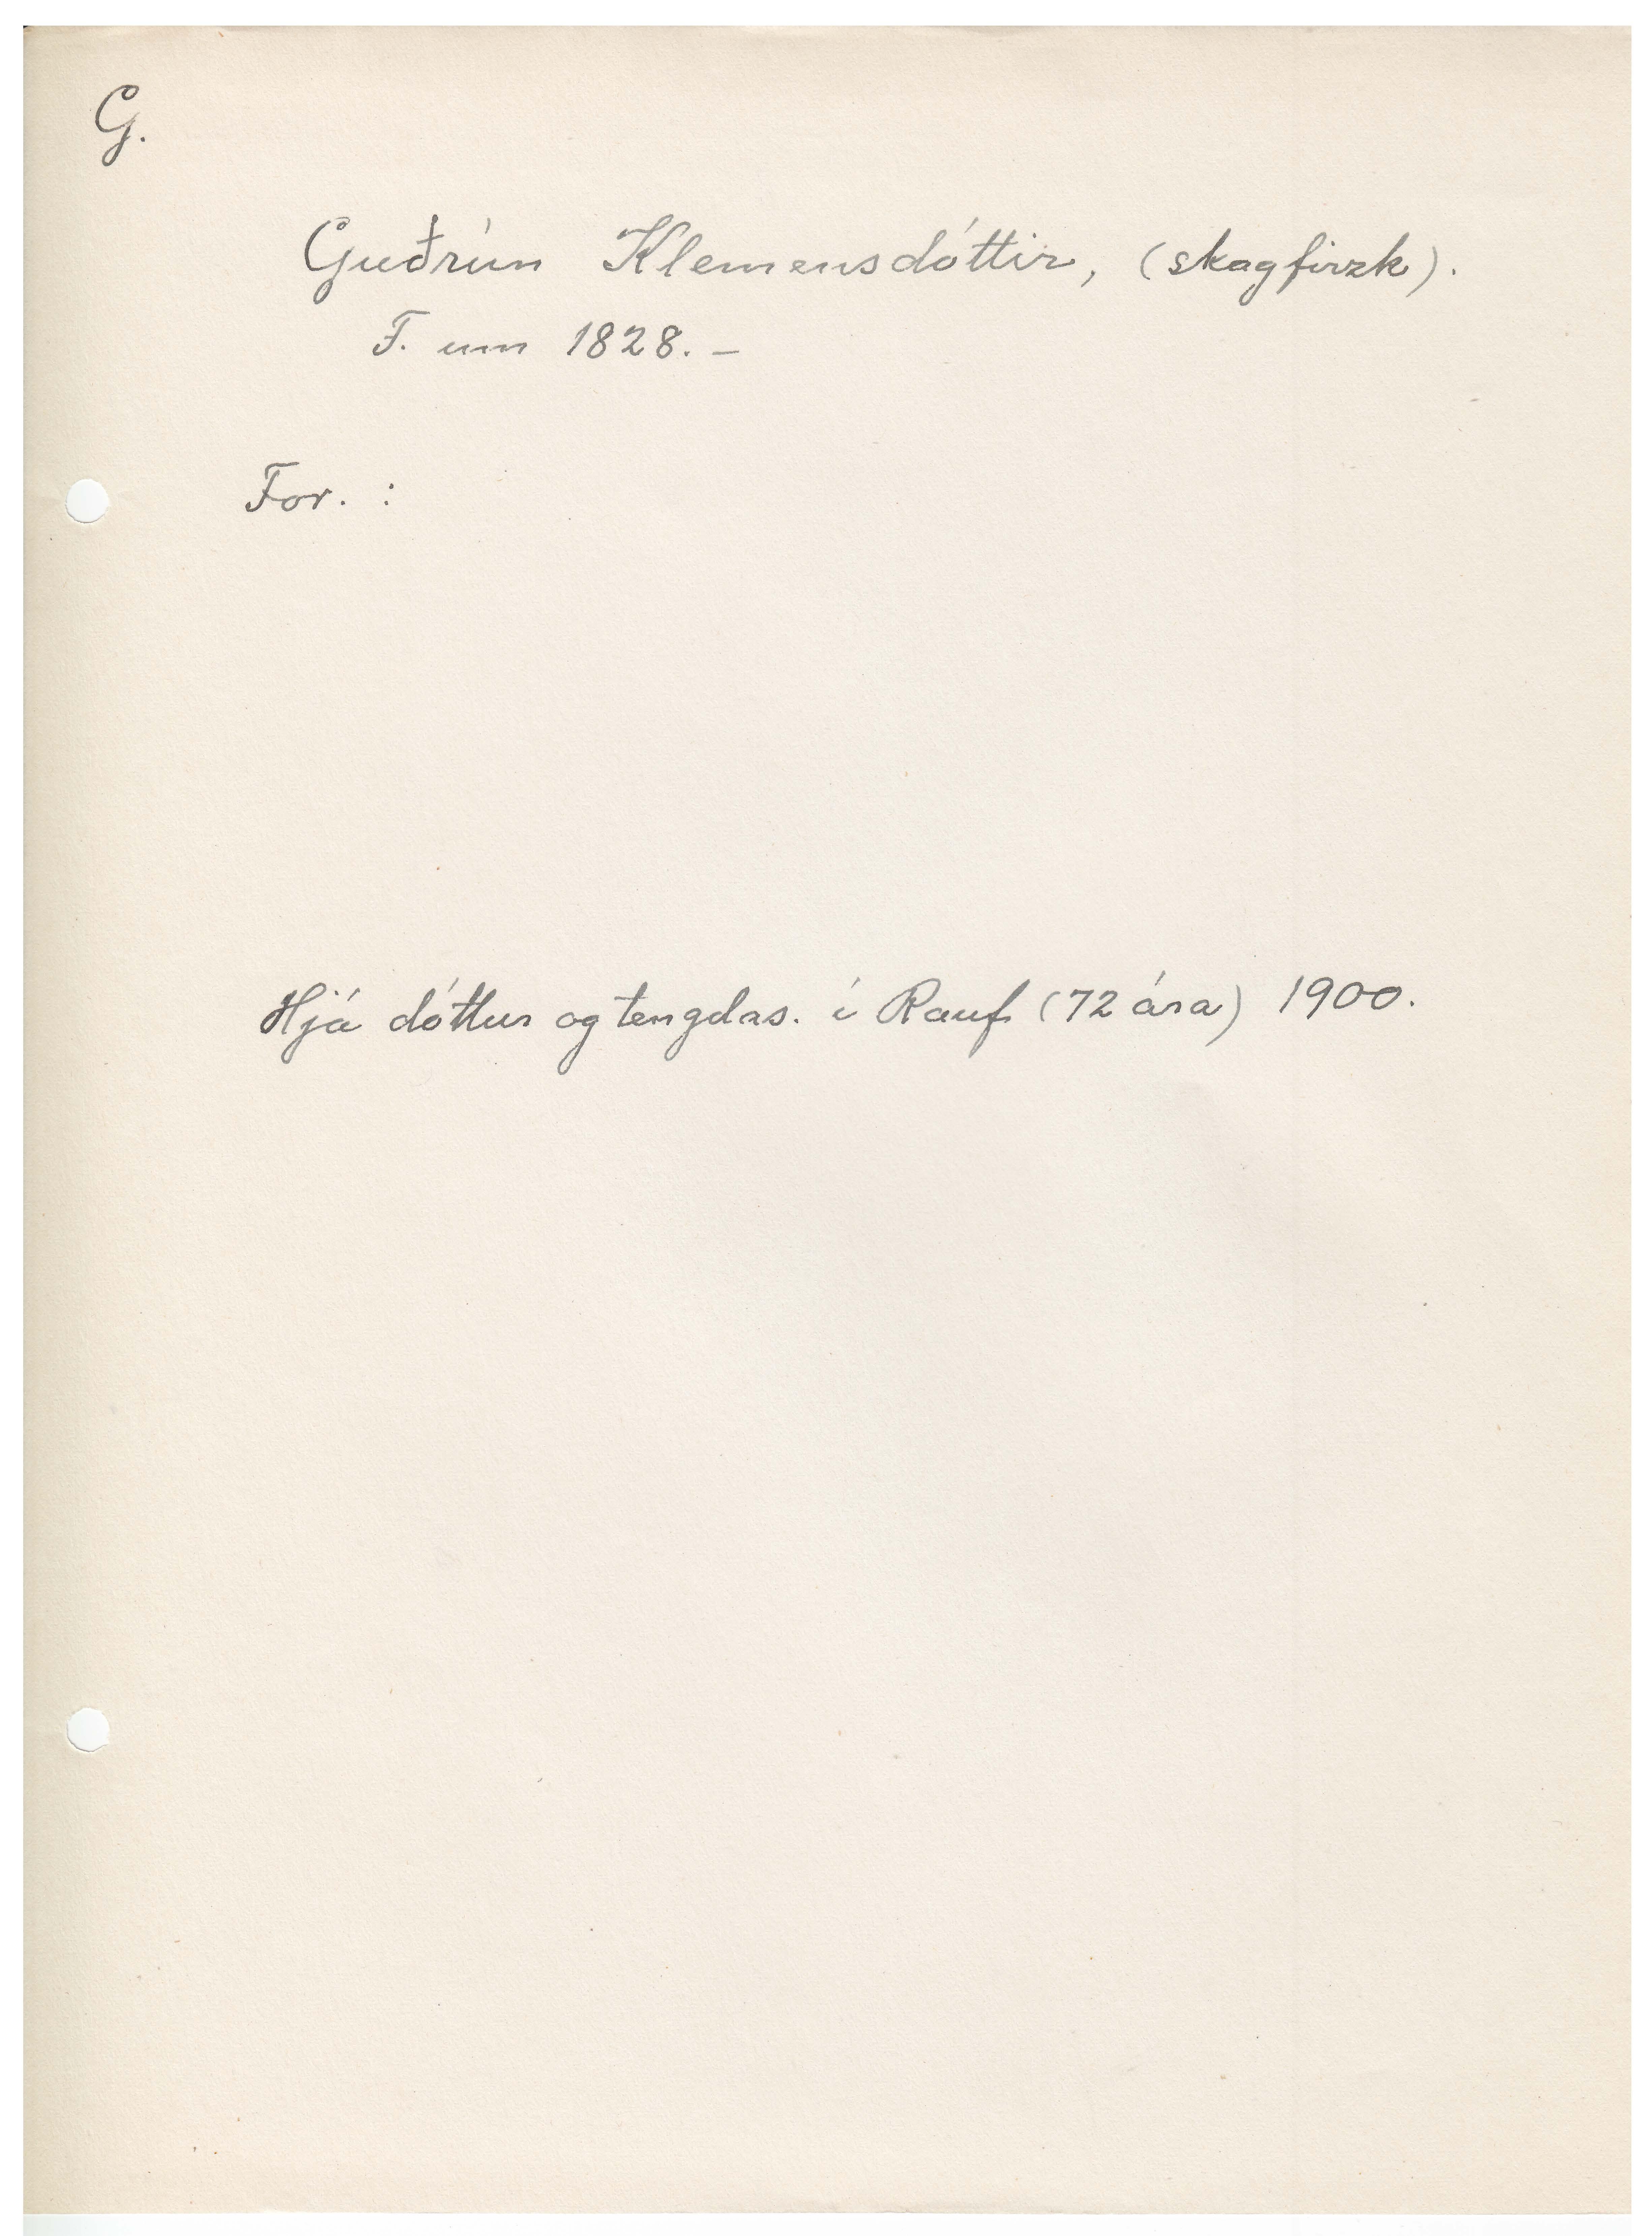 G.
Guðrún Klemensdóttir, (skagfirzk).
F. um 1828. –
For. :
Hjá dóttur og tengdas. í Rauf (72 ára) 1900.